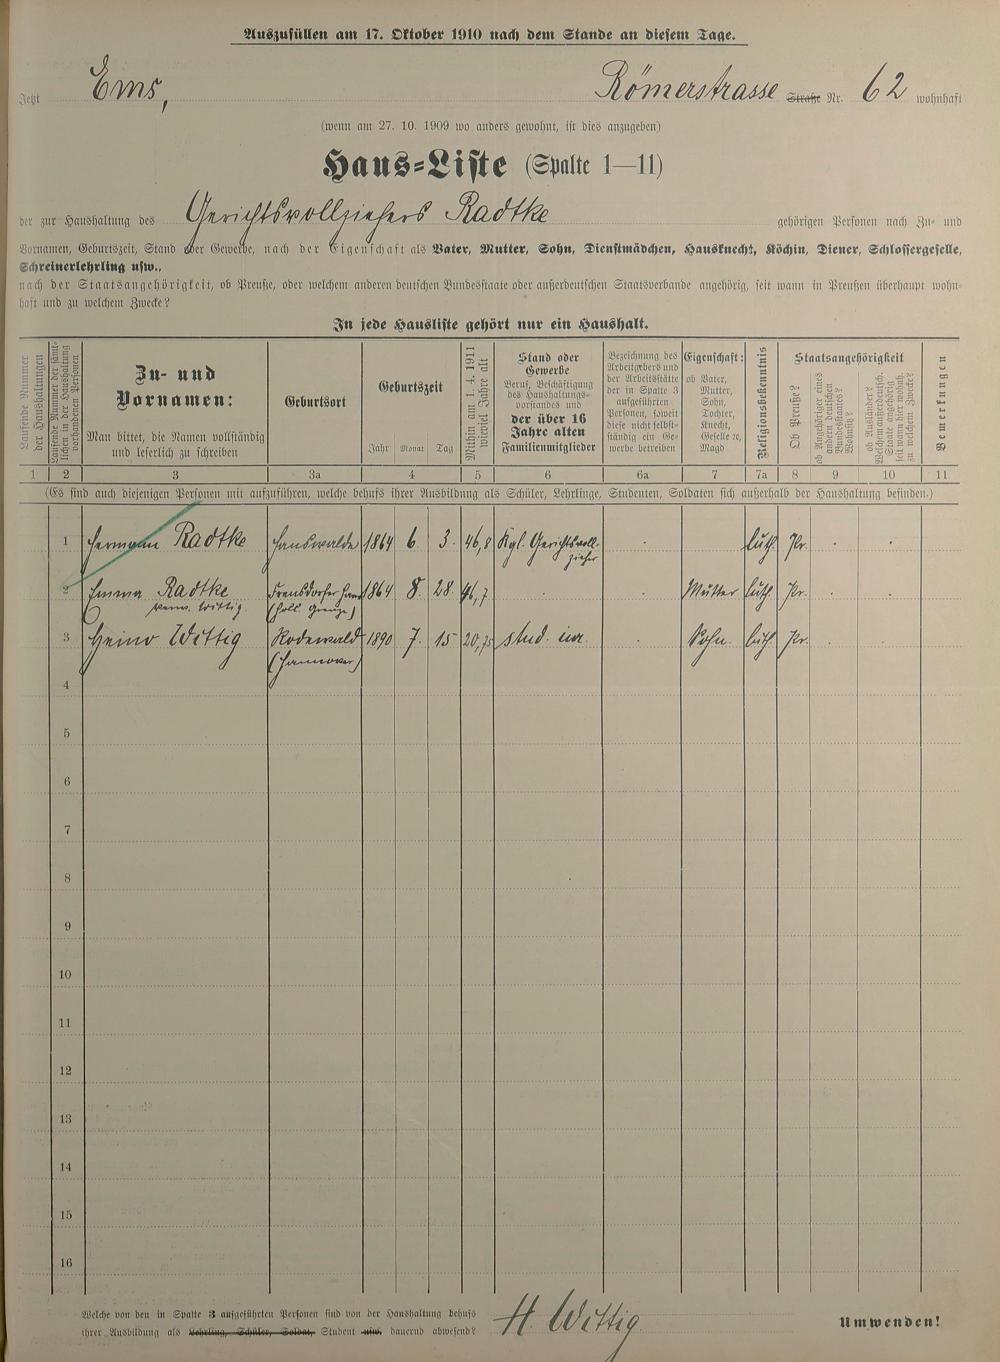 Auszufüllen am 17. Oktober 1910 nach dem Stande an diesem Tage.
Jetzt Ems, Römerstrasse Straße Nr. 62 wohnhaft
(wenn am 27. 10. 1909 wo anders gewohnt, ist dies anzugeben)
Haus=Liste (Spalte 1—11)
der zur Haushaltung des Gerichtsvollziehers Radtke gehörigen Personen nach Zu- und
Vornamen, Geburtszeit, Stand oder Gewerbe, nach der Eigenschaft als Vater, Mutter, Sohn, Dienstmädchen, Hausknecht, Köchin, Diener, Schlossergeselle,
Schreinerlehrling usw.,
nach der Staatsangehörigkeit, ob Preuße, oder welchem anderen deutschen Bundesstaate oder außerdeutschen Staatsverbande angehörig, seit wann in Preußen überhaupt wohn-
haft und zu welchem Zwecke?
In jede Hausliste gehört nur ein Haushalt.
Laufende Nummer der Haushaltungen
Laufende Nummer der sämt-
lichen in der Haushaltung
vorhandenen Personen
Zu- und
Vornamen:
Man bittet, die Namen vollständig
und leserlich zu schreiben
Geburtsort
Geburtszeit
Jahr Monat Tag
Mithin am 1. 4. 1911
wieviel Jahre alt
Stand oder
Gewerbe
Beruf, Beschäftigung
des Haushaltungs-
vorstandes und
der über 16
Jahre alten
Familienmitglieder
Bezeichnung des
Arbeitgebers und
der Arbeitsstätte
der in Spalte 3
aufgeführten
Personen, soweit
diese nicht selbst-
ständig ein Ge-
werbe betreiben
Eigenschaft:
ob Vater,
Mutter,
Sohn,
Tochter,
Knecht,
Geselle ꝛc,
Magd
Religionsbekenntnis
Staatsangehörigkeit
Ob Preuße?
ob Angehöriger eines
andern deutschen
Bundesstaates?
Wohnsitz?
ob Ausländer?
Welchem außerdeutsch.
Staate angehörig
seit wann hier wohnh.
zu welchem Zwecke?
Bemerkungen
1 2 3 3a 4 5 6 6a 7 7a 8 9 10 11
(Es sind auch diejenigen Personen mit aufzuführen, welche behufs ihrer Ausbildung als Schüler, Lehrlinge, Studenten, Soldaten sich außerhalb der Haushaltung befinden.)
1 Hermann Radtke Hanswalde 1864 6. 3. 46,8 Kgl. Gerichtsvoll- luth. Pr.
zieher
2 Emma Radtke 1864 8. 28. 46,7 Mutter luth. Pr.
verw. Wittig. (holl. Grenze)
3 Heino Wittig Rodewald 1890 7. 15 20,75 stud. iur. Sohn. luth. Pr.
(Hannover)
4
5
6
7
8
9
10
11
12
13
14
15
16
Welche von den in Spalte 3 aufgeführten Personen sind von der Haushaltung behufs
ihrer Ausbildung als Lehrling, Schüler, Soldat, Student usw. dauernd abwesend?
H. Wittig
Umwenden!